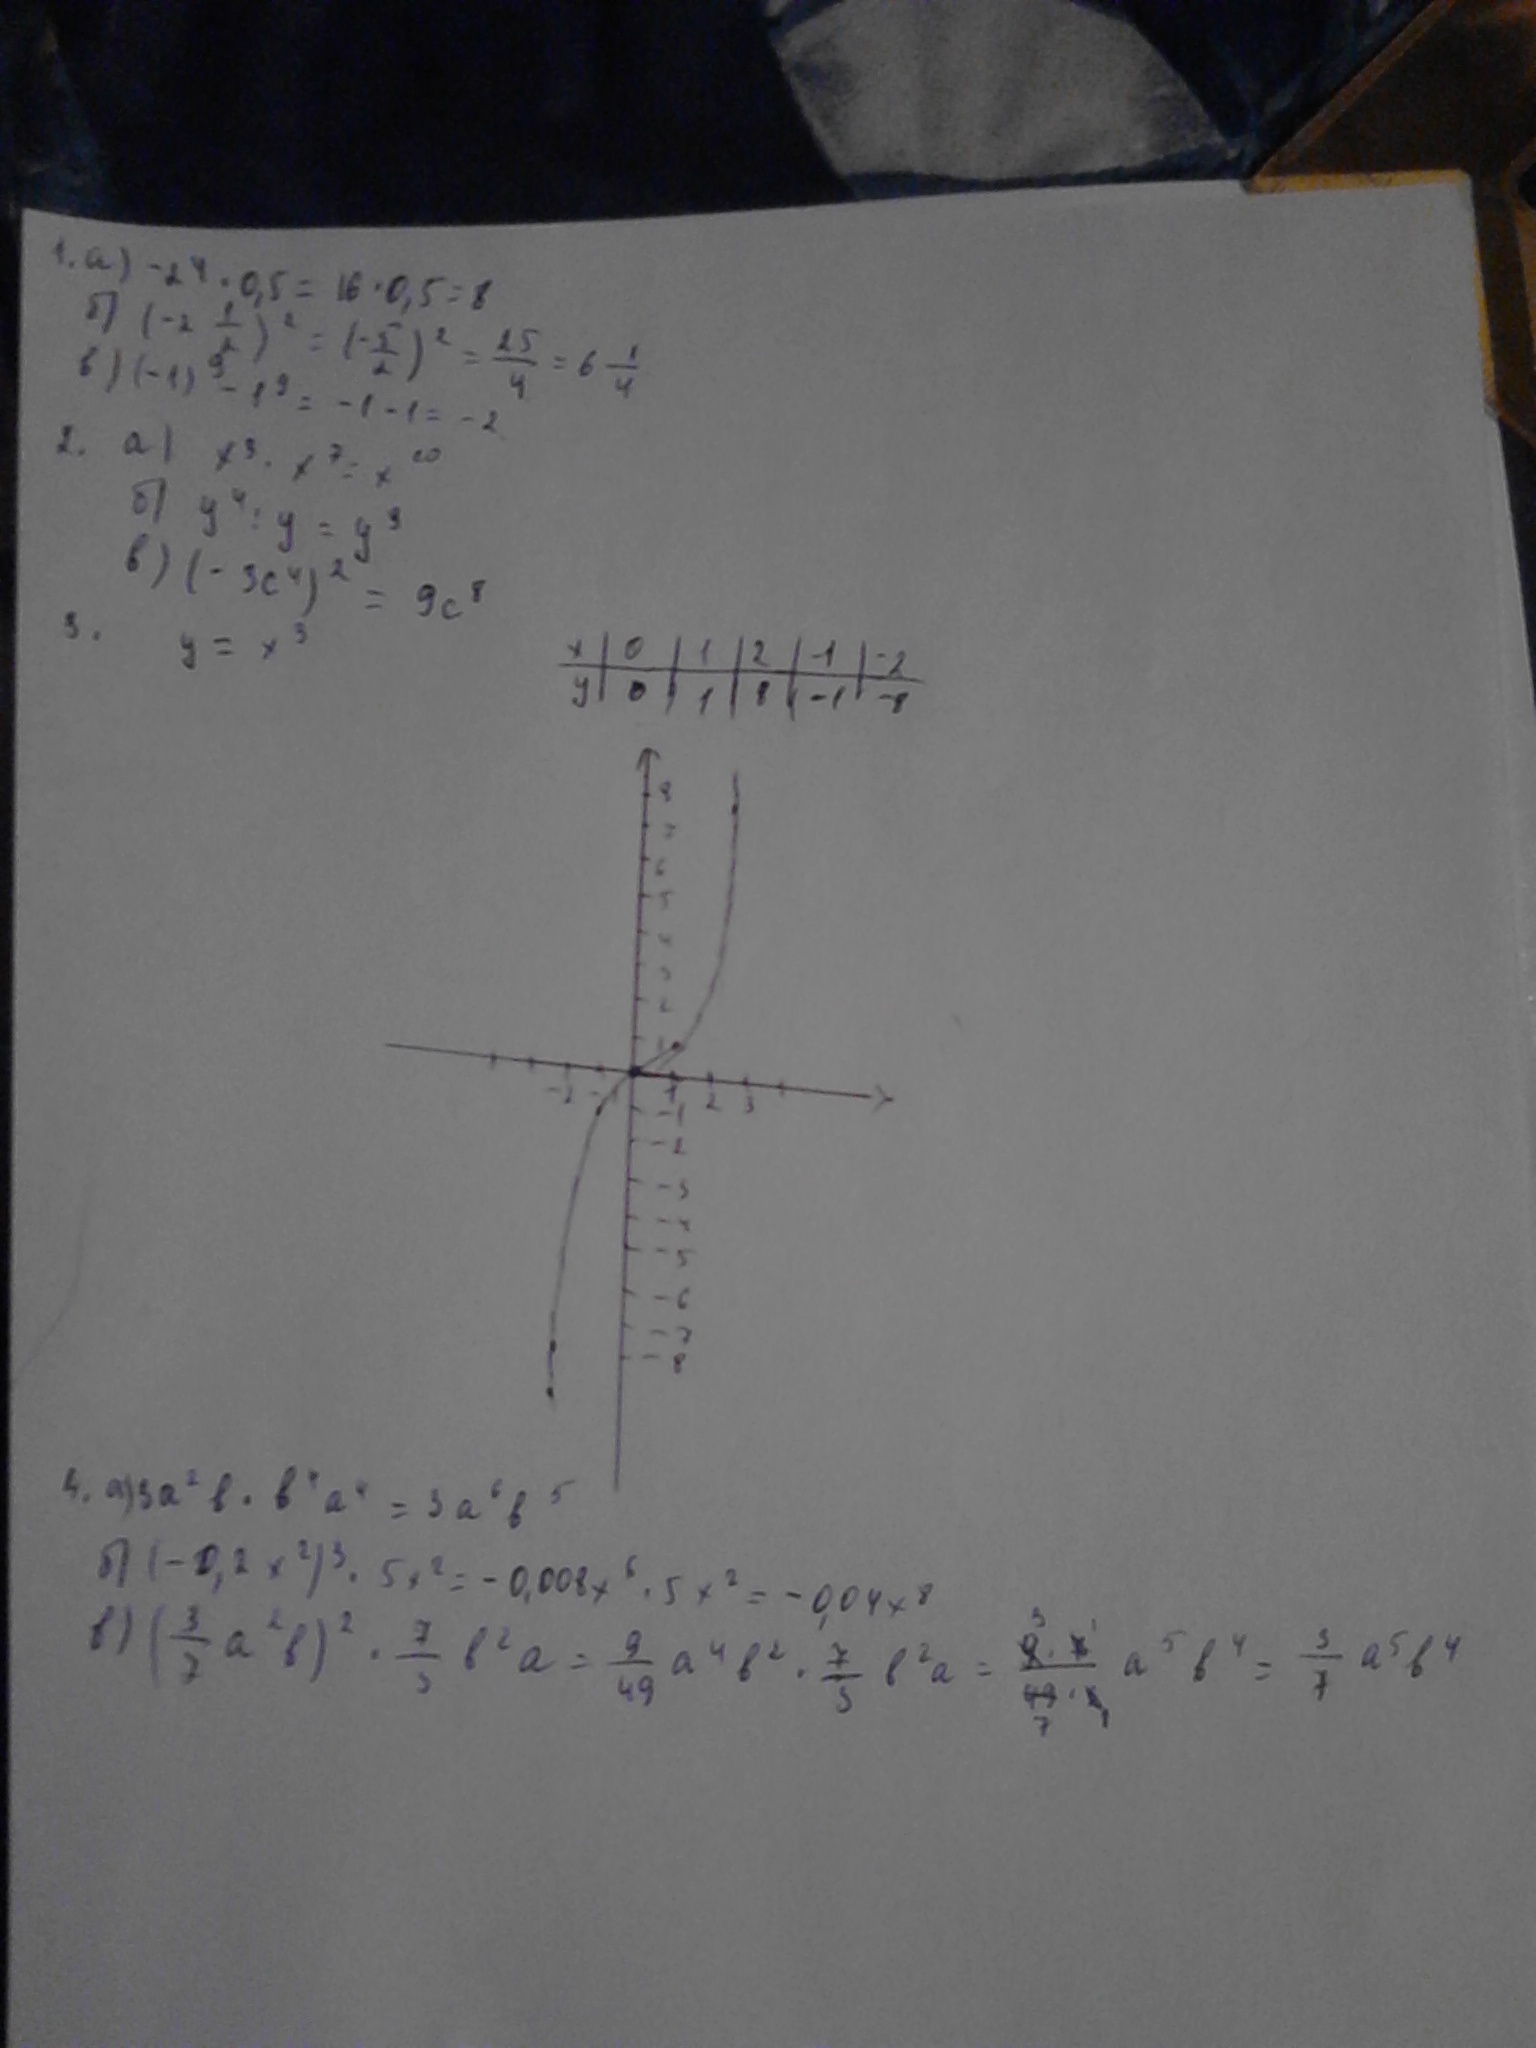 1. а) -2⁴ · 0,5 = 16 · 0,5 = 8
б) (-2 1/2)² = (-5/2)² = 25/4 = 6 1/4
в) (-1)⁹ - 1⁹ = -1 - 1 = -2
2. а) x³ · x⁷ = x¹⁰
б) y⁴ : y = y³
в) (-3c⁴)² = 9c⁸
3. y = x³
x | 0 | 1 | 2 | -1 | -2
y | 0 | 1 | 8 | -1 | -8
8
7
6
5
4
3
2
1
-2 -1 1 2 3
-1
-2
-3
-4
-5
-6
-7
-8
4. а) 3a²b · b⁴a⁴ = 3a⁶b⁵
б) (-0,2x²)³ · 5x² = -0,008x⁶ · 5x² = -0,04x⁸
в) (3/7 a²b)² · 7/3 b²a = 9/49 a⁴b² · 7/3 b²a = 9·7/49·3 a⁵b⁴ = 3/7 a⁵b⁴